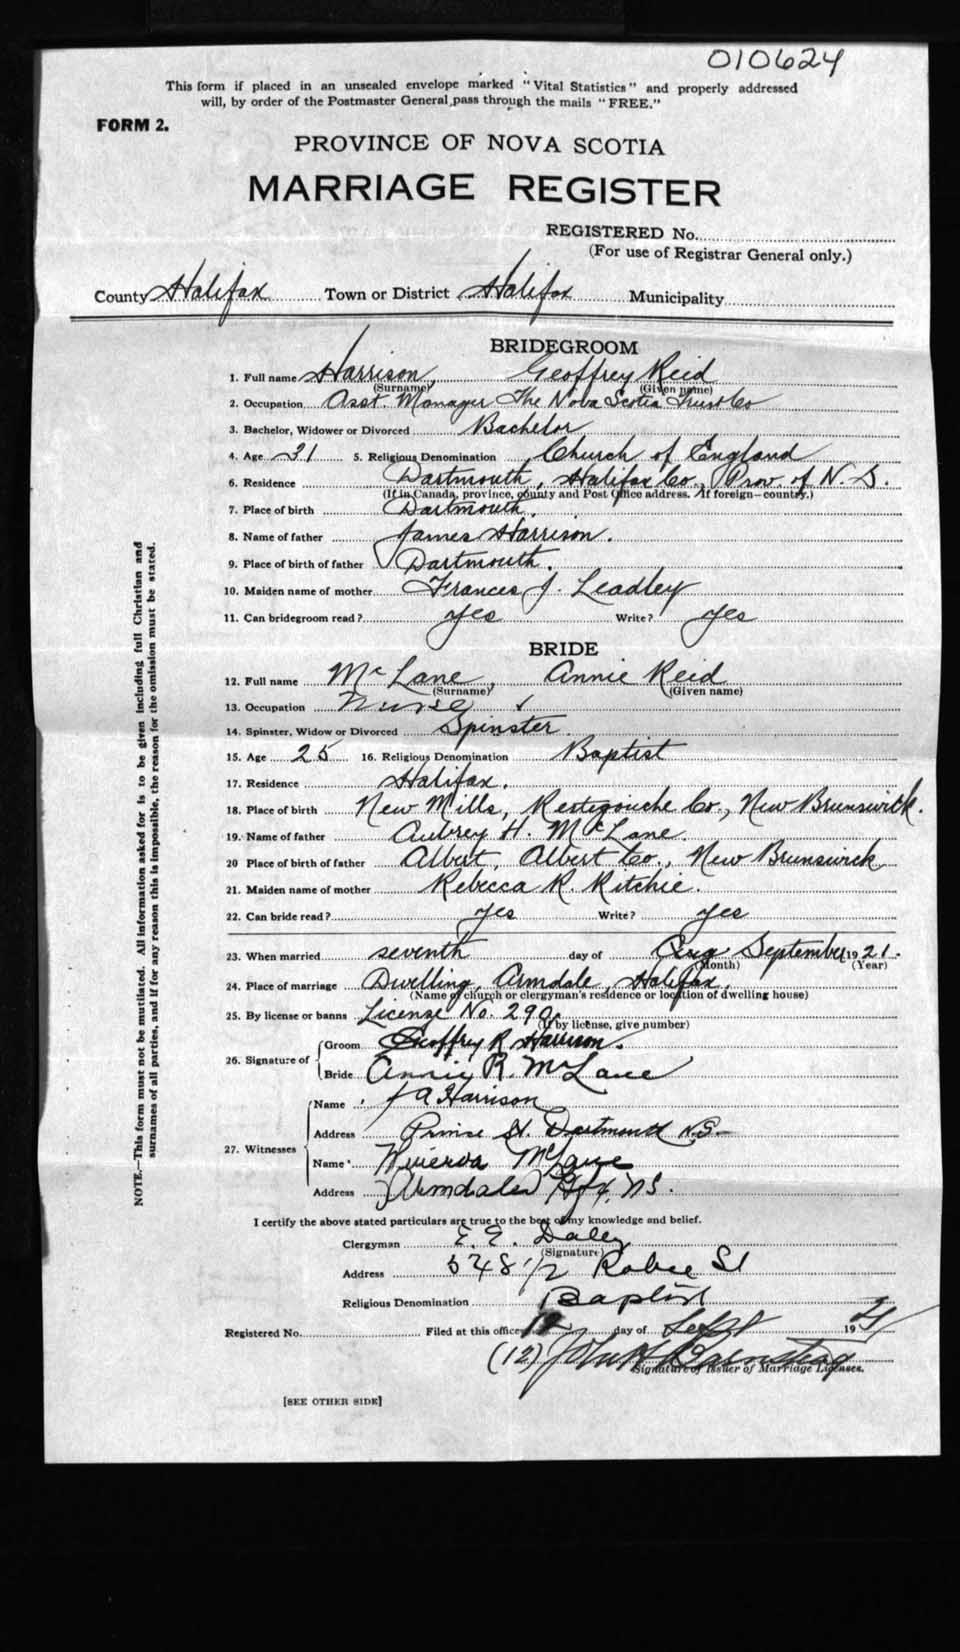 010624
This form if placed in an unsealed envelope marked "Vital Statistics" and properly addressed
will, by order of the Postmaster General, pass through the mails "FREE."
FORM 2.
PROVINCE OF NOVA SCOTIA
MARRIAGE REGISTER
REGISTERED No.
(For use of Registrar General only.)
County Halifax Town or District Halifax Municipality
BRIDEGROOM
1. Full name Harrison, Geoffrey Reid
(Surname) (Given name)
2. Occupation Asst. Manager The Nova Scotia Trust Co
3. Bachelor, Widower or Divorced Bachelor
4. Age 31 5. Religious Denomination Church of England
6. Residence Dartmouth, Halifax Co., Prov. of N. S.
(If in Canada, province, county and Post Office address. If foreign—country.)
7. Place of birth Dartmouth.
8. Name of father James Harrison.
9. Place of birth of father Dartmouth.
10. Maiden name of mother Frances J. Leadley
11. Can bridegroom read? Yes Write? Yes
BRIDE
12. Full name McLane, Annie Reid
(Surname) (Given name)
13. Occupation Nurse
14. Spinster, Widow or Divorced Spinster.
15. Age 25 16. Religious Denomination Baptist
17. Residence Halifax.
18. Place of birth New Mills, Restigouche Co., New Brunswick.
19. Name of father Aubrey H. McLane.
20 Place of birth of father Albert, Albert Co., New Brunswick
21. Maiden name of mother Rebecca R. Ritchie.
22. Can bride read? Yes Write? Yes
23. When married seventh day of Aug September 1921.
(Month) (Year)
24. Place of marriage Dwelling, Armdale, Halifax.
(Name of church or clergyman's residence or location of dwelling house)
25. By license or banns License No. 290
(If by license, give number)
26. Signature of Groom Geoffrey R Harrison.
Bride Annie R. McLane
27. Witnesses Name J A Harrison
Address Prince St. Dartmouth N.S.
Name Minerva McLane
Address Armdale Hfx. N.S.
I certify the above stated particulars are true to the best of my knowledge and belief.
Clergyman E. E. Daley
(Signature)
Address 548 1/2 Robie St
Religious Denomination Baptist
Registered No. Filed at this office 12 day of Sept 1921
(12) John H Barnstead
Signature of Issuer of Marriage Licenses.
[SEE OTHER SIDE]
NOTE.—This form must not be mutilated. All information asked for is to be given including full Christian and
surnames of all parties, and if for any reason this is impossible, the reason for the omission must be stated.